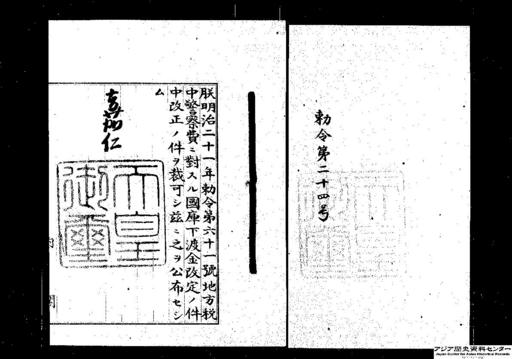 勅令第二十四号
朕明治二十一年勅令第六十一號地方税
中警察費ニ對スル國庫下渡金改定ノ件
中改正ノ件ヲ裁可シ茲ニ之ヲ公布セシ
ム
嘉仁
天皇
御璽
内閣
アジア歴史資料センター
Japan Center for Asian Historical Records